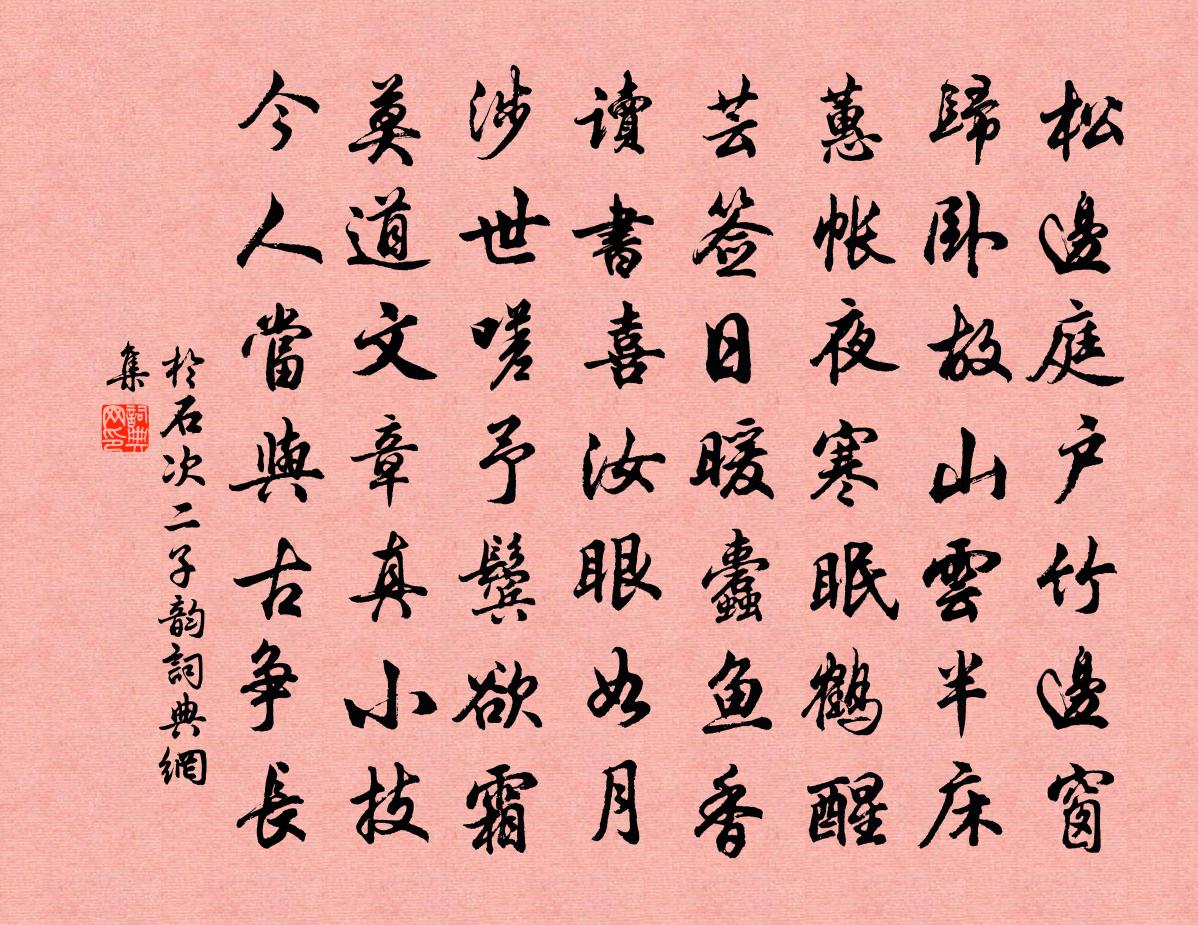 松邊庭户竹邊窗
歸卧故山雲半床
蕙帐夜寒眠鹤醒
芸签日暖蠹鱼香
读書喜汝眼如月
涉世嗟予鬓欲霜
莫道文章真小技
今人當與古争長
於石次二子韵詞典網
集
詞典網印